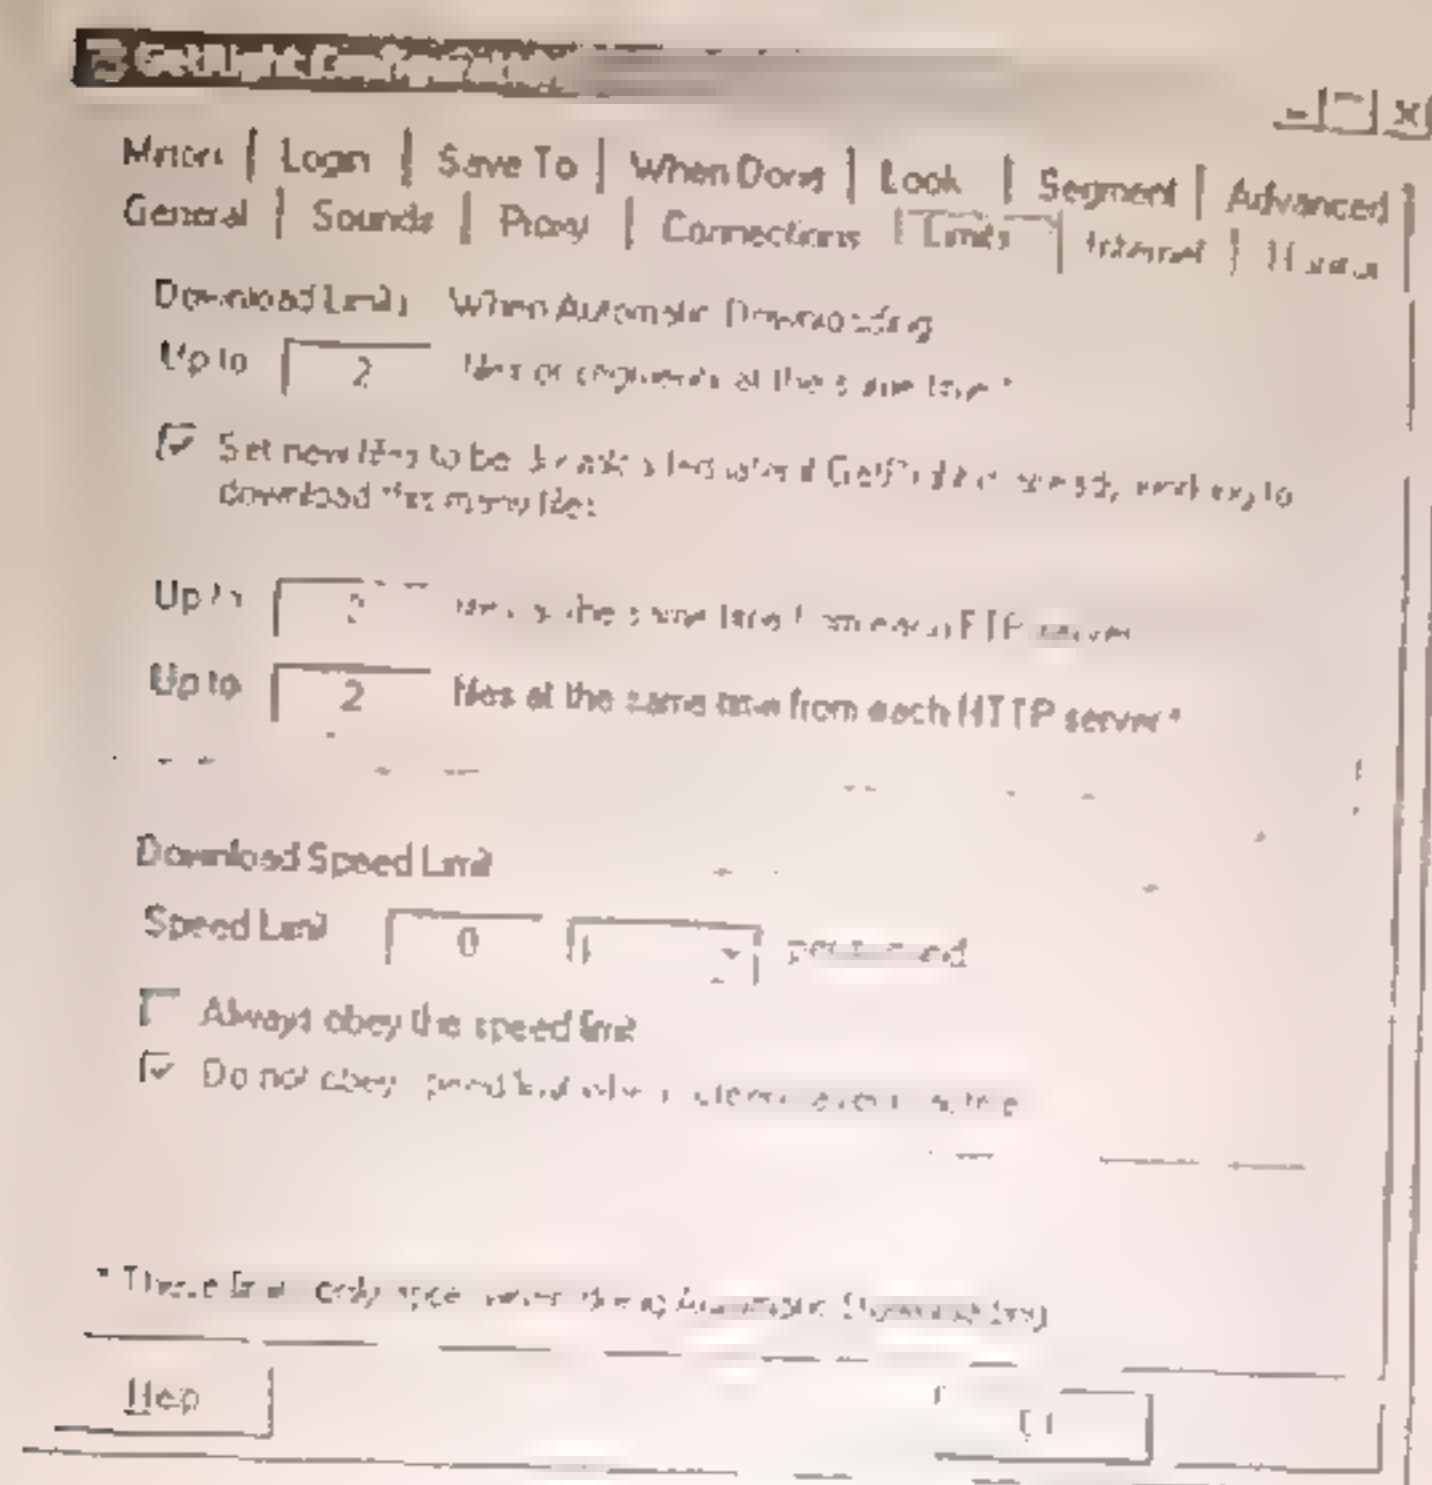 GetRight Configuration
Mirrors Login Save To When Done Look Segment Advanced
General Sounds Proxy Connections Limits Internet
Download Limits When Automatic Downloading
Up to 2 files or segments at the same time *
Set new files to be
download this many files
Up to files at the same time from each FTP server
Up to 2 files at the same time from each HTTP server *
Download Speed Limit
Speed Limit 0 per second
Always obey the speed limit
Do not obey speed limit when
* These only during Automatic Downloading
Help